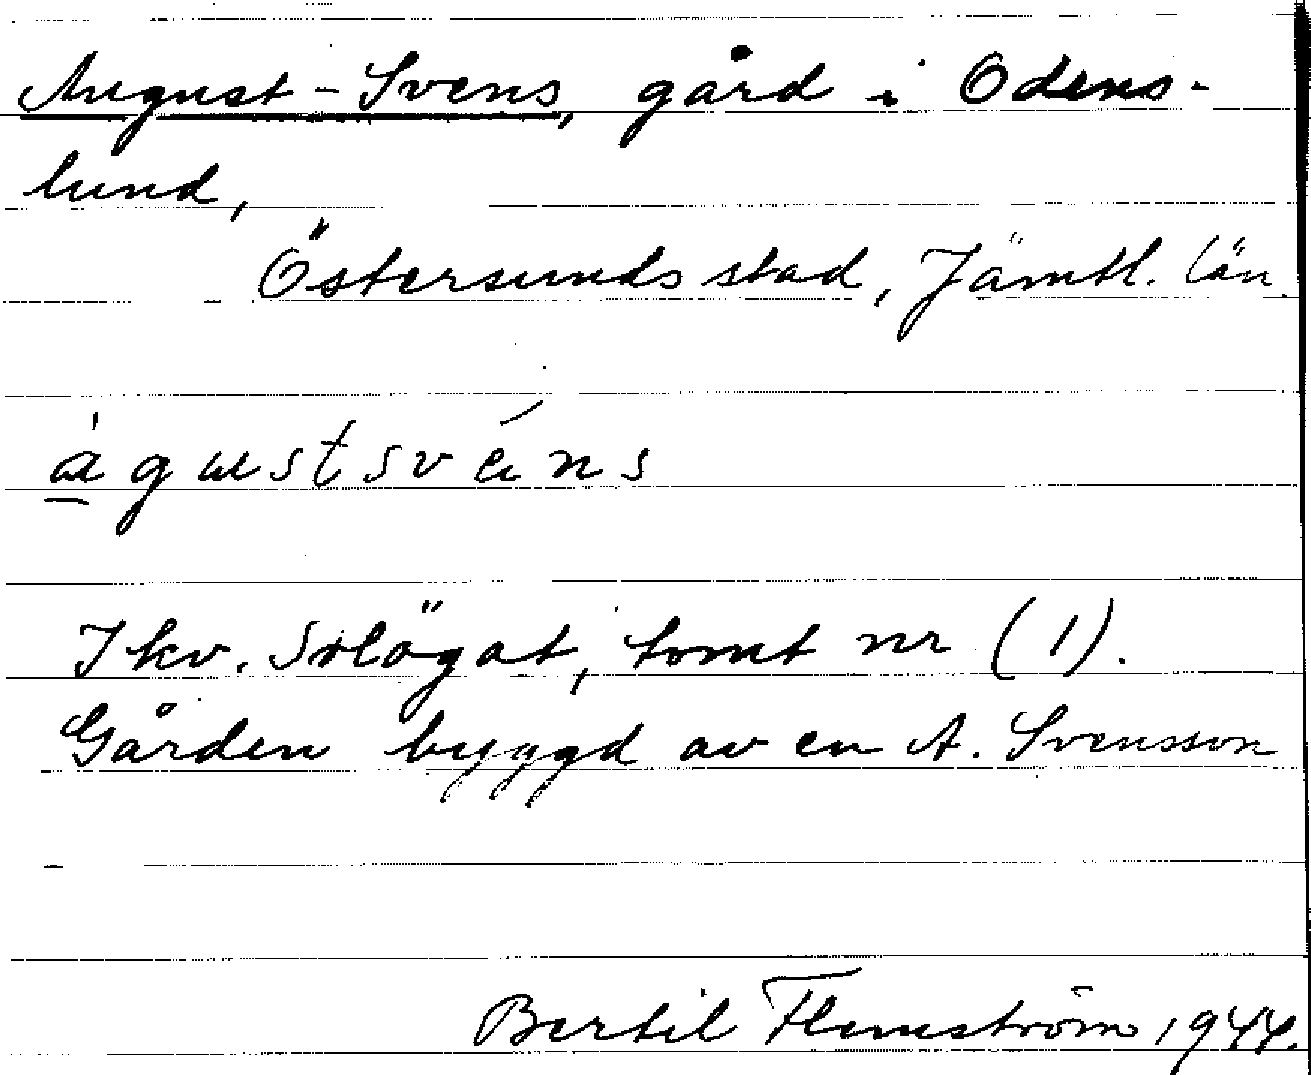 August-Svens, gård i Odens-
lund,
Östersunds stad, Jämtl. län.
àgustsvéns
I kv. Solögat, tomt nr (1).
Gården byggd av en A. Svensson
Bertil Flemström 1944.